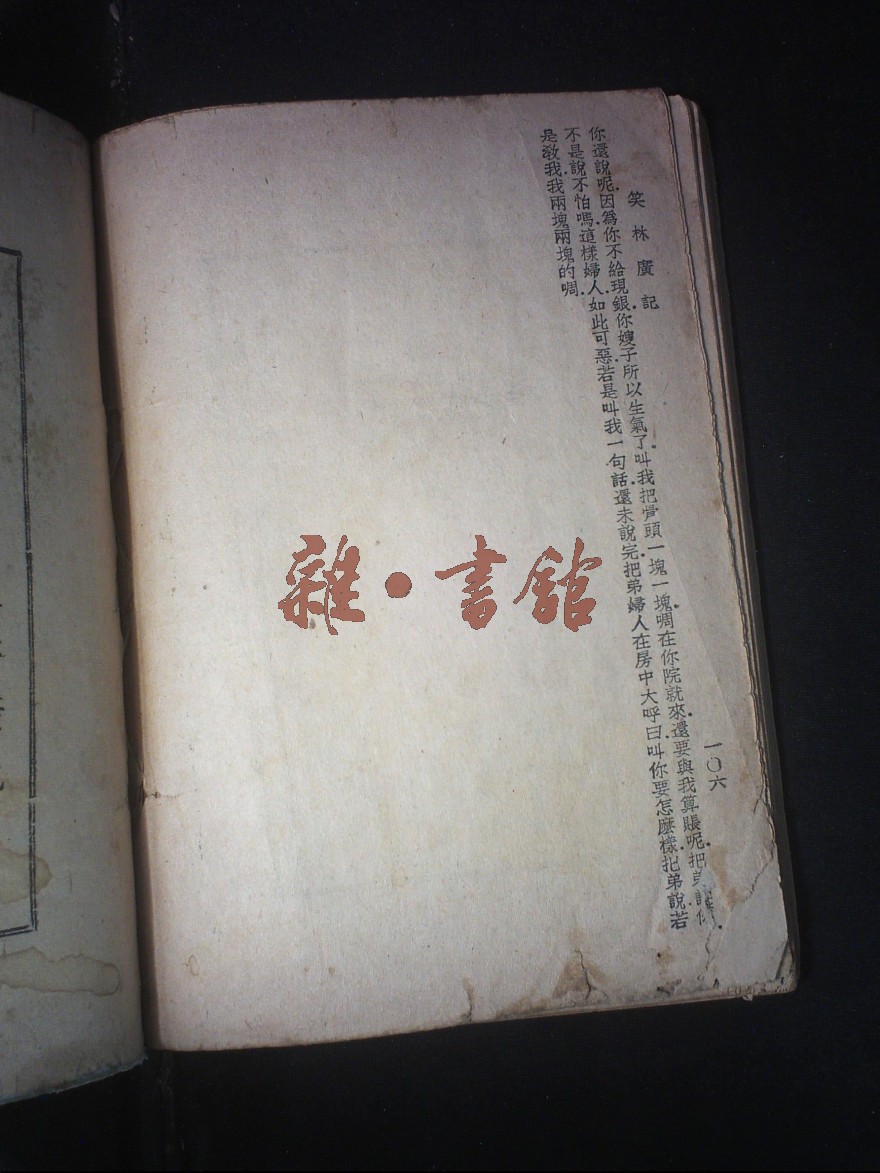 笑林廣記
一〇六
你還說呢.因爲你不給現銀.你嫂子所以生氣了.叫我把骨頭一塊一塊.啁在你院就來.還要與我算賬呢.把弟
不是說不怕嗎.這樣婦人.如此可惡.若是叫我一句話.還未說完.把弟婦人在房中大呼曰.叫你要怎麼樣.把弟說若
是敎我.我兩塊兩塊的啁.
雜·書館